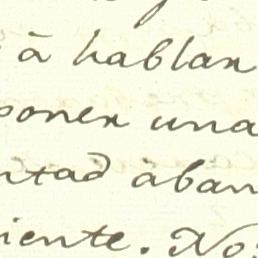 à hablar
poner una
ntad aban
iente. No